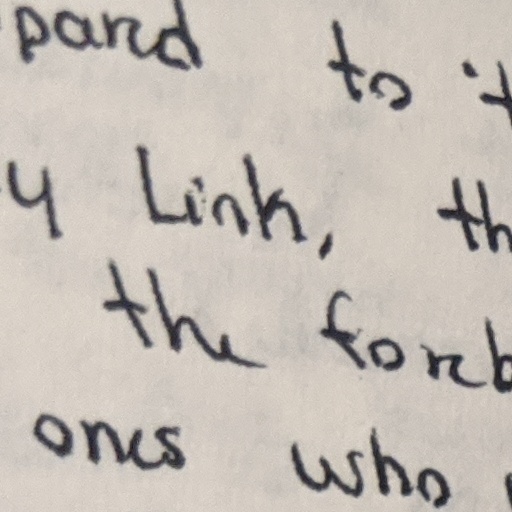 pard to
y Link, th
the forb
ones who